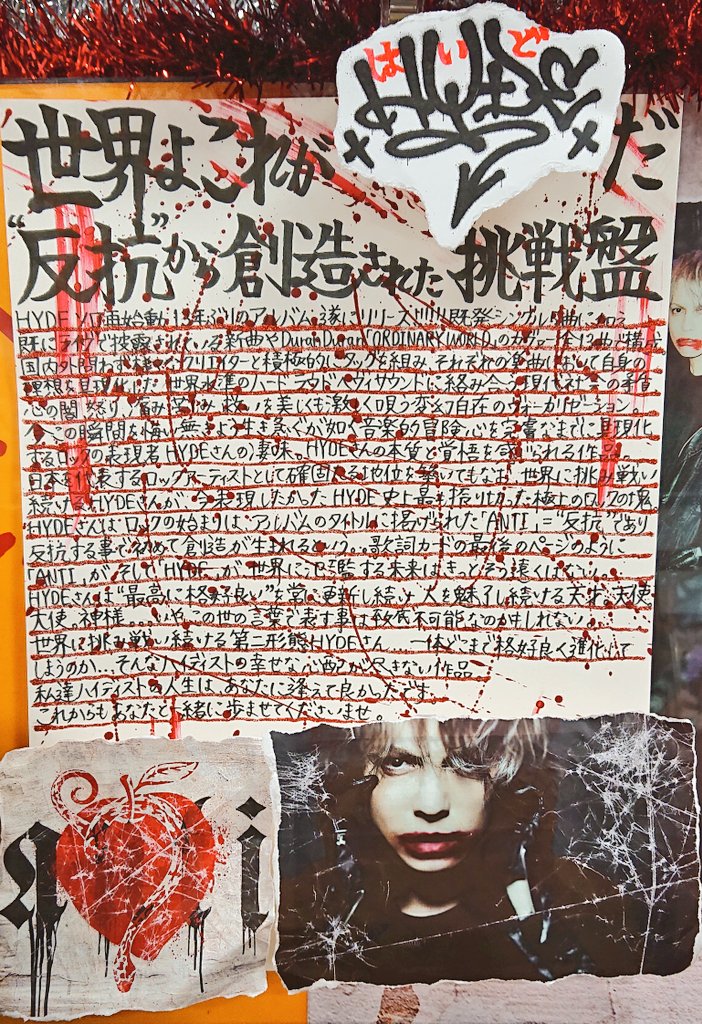 はいど
HYDE
世界よこれが だ
“反抗”から創造された挑戦盤
HYDE ソロ再始動 13年ぶりのアルバム、遂にリリース!!!!! 既発シングル 曲に加え
既にライヴで披露されている新曲やDuran Duran「ORDINARY WORLD」のカヴァー、全13曲で構成
国内外問わず様々なクリエイターと積極的にタッグを組み、それぞれの楽曲において自身の
理想を具現化した世界水準のハード ラウド ヘヴィサウンドに絡み合う現代社会の矛盾
心の闇、怒り、痛み を美しくも激しく唄う変幻自在のヴォーカリゼーション。
今この瞬間を悔い無きよう生き急ぐが如く音楽的冒険心を完膚なきまでに具現化
するロックの表現者HYDEさんの凄味。HYDEさんの本質と覚悟を感じられる作品。
日本を代表するロックアーティストとして確固たる地位を築いてもなお、世界に挑み戦い
続けるHYDEさんが、今表現したかったHYDE史上最も振り切った極上のロックの塊
HYDEさんは、ロックの始まりは、アルバムのタイトルに掲げられた「ANTI」=“反抗”であり
反抗する事で初めて創造が生まれるという。。歌詞カードの最後のページのように
「ANTI」が、そして「HYDE」が、世界に 濫する未来はきっとそう遠くはない。。
HYDEさんは“最高に格好良い”を常に更新し続け人を魅了し続ける天才、天使
大使、神様。。。いや、この世の言葉で表す事は最早不可能なのかもしれない。
世界に挑み戦い続ける第二形態HYDEさん...一体どこまで格好良く進化して
しまうのか...そんなハイディストの幸せな心配が尽きない作品
私達ハイディストの人生は、あなたに逢えて良かったです。
これからもあなたと一緒に歩ませてくださいませ。
anti